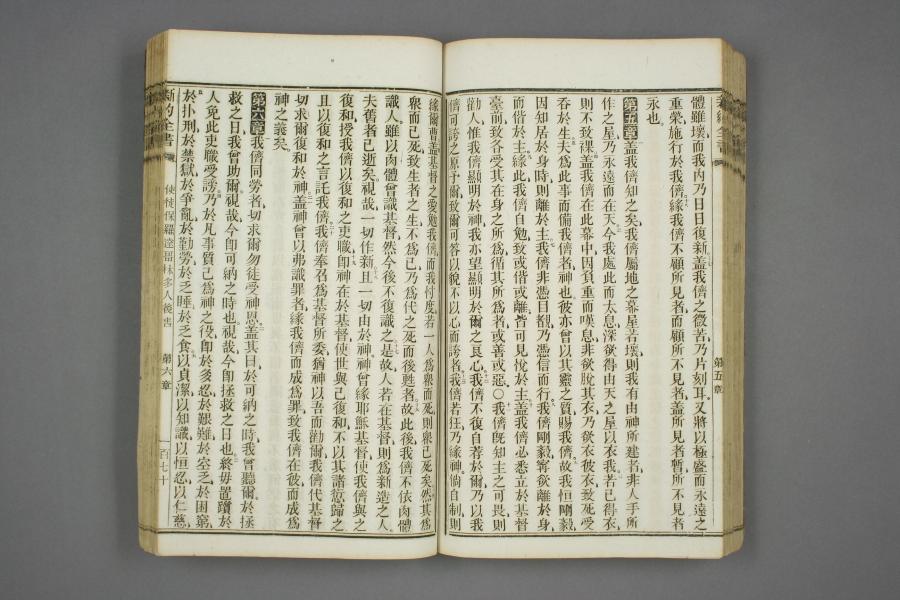 體雖壞而我內乃日日復新蓋我儕之微苦乃片刻耳又將以極盛而永遠之
重榮施行於我儕緣我儕不顧所見者而顧所不見者蓋所見者暫所不見者
永也
第五章蓋我儕知之矣我儕屬地之幕屋若壞則我有由神所建者非人手所
作之屋乃永遠而在天今我處此而太息深欲得由天之屋以衣我若已得衣
則不致裸蓋我儕在此幕中因負重而嘆息非欲脫其衣乃欲衣彼衣致死受
吞於生夫為此事而備我儕者神也彼亦曾以其靈之質賜我儕故我恒剛毅
因知居於身時則離於主我儕非憑目覩乃憑信而行我儕剛毅寧欲離於身
而偕於主緣此我儕自勉致或偕或離皆可見悅於主蓋我儕必悉立於基督
臺前致各受其在身之所為循其所為者或善或惡○我儕旣知主之可畏則
勸人惟我儕顯明於神我亦望顯明於爾之良心我儕不復自薦於爾乃以我
儕可誇之原予爾致爾可答以貌不以心而誇者我儕若狂乃緣神倘自制則
緣爾曹蓋基督之愛勉我儕而我忖度若一人為衆而死則衆已死矣然其為
衆而已死致生者之生不為己乃為代之死而後甦者故此後我儕不依肉體
識人雖以肉體曾識基督然今後不復識之是故人若在基督則為新造之人
夫舊者已逝矣視哉一切作新且一切由於神神曾緣耶穌基督使我儕與之
復和授我儕以復和之吏職卽神在於基督使世與己復和不以其諸愆歸之
且以復和之言託我儕我儕奉召為基督所委猶神以吾而勸爾我儕代基督
切求爾復和於神蓋神曾以弗識罪者緣我儕而成為罪致我儕在彼而成為
神之義矣
第六章我儕同勞者切求爾勿徒受神恩蓋其曰於可納之時我曾聽爾於拯
救之日我曾助爾視哉今卽可納之時也視哉今卽拯救之日也終毋置躓於
人免此吏職受謗乃於凡事質己為神之役卽於多忍於艱難於空乏於困窮
於扑刑於禁獄於爭亂於勤勞於乏睡於乏食以貞潔以知識以恒忍以仁慈
新約全書
使徒保羅達哥林多人後書
第六章
一百七十
第五章